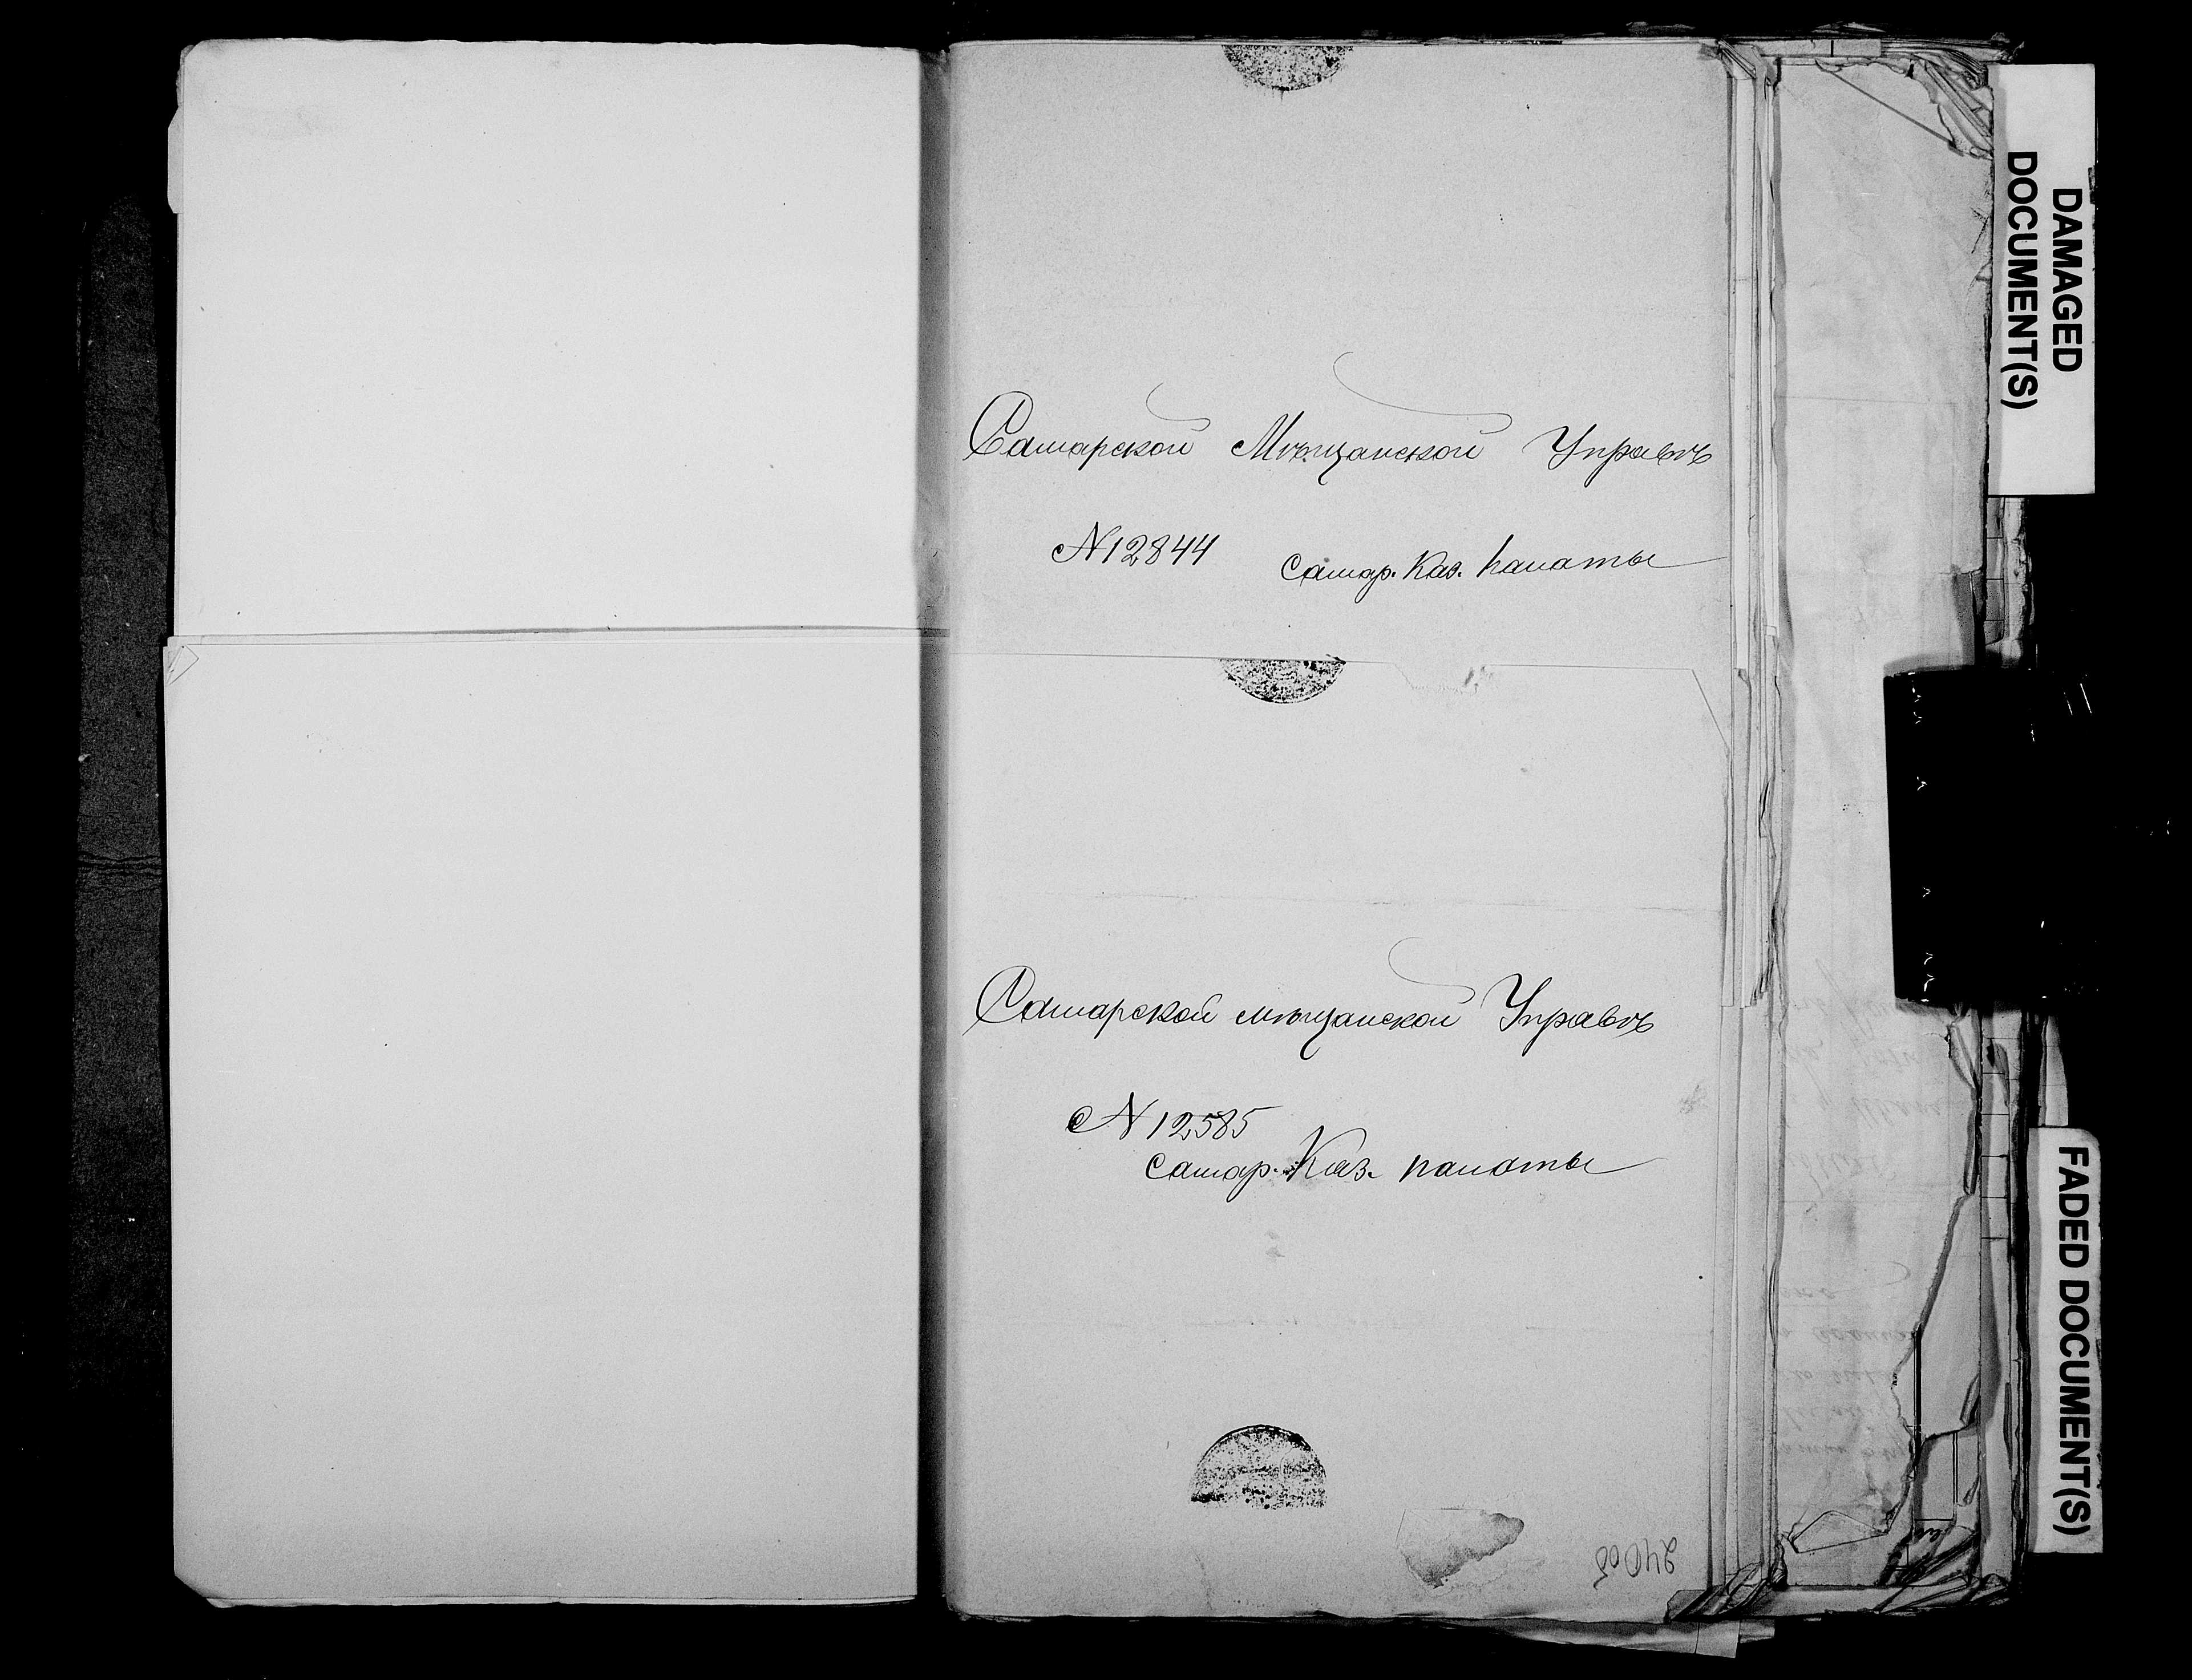 Самарской Мѣщанской Управѣ
N 12844
Самар. Каз. палаты
Самарской мѣщанской Управѣ
N 12585
Самар. Каз. палаты
DAMAGED
DOCUMENT(S)
FADED DOCUMENT(S)